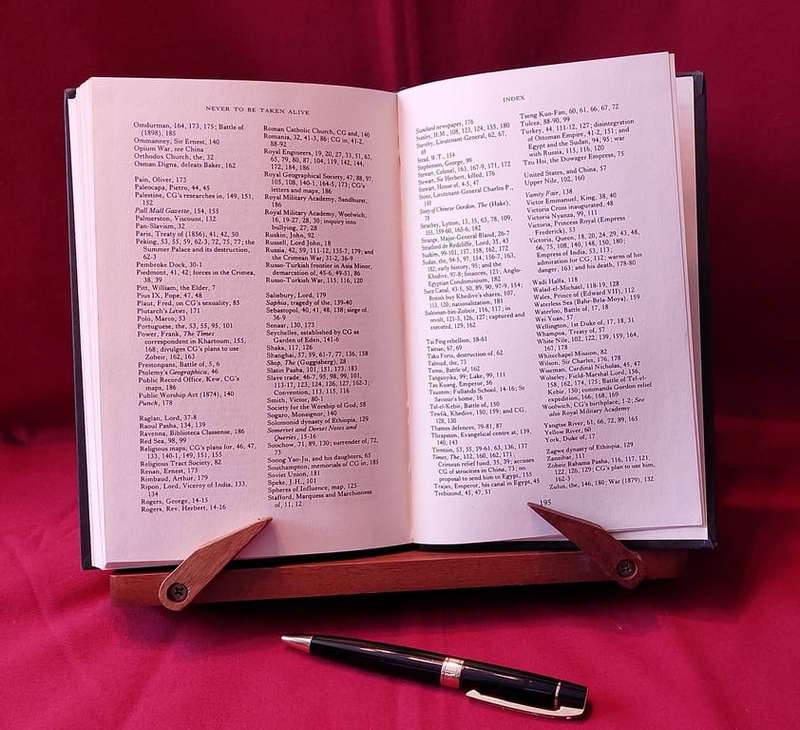 NEVER TO BE TAKEN ALIVE
Omdurman, 164, 173, 175; Battle of
(1898), 185
Ommanney, Sir Ernest, 140
Opium War, see China
Orthodox Church, the, 32
Osman Digna, defeats Baker, 162
Pain, Oliver, 173
Paleocapa, Pietro, 44, 45
Palestine, CG's researches in, 149, 151,
152
Pall Mall Gazette, 154, 155
Palmerston, Viscount, 132
Pan-Slavism, 32
Paris, Treaty of (1856), 41, 42, 50
Peking, 53, 55, 59, 62-3, 72, 75, 77; the
Summer Palace and its destruction,
62-3
Pembroke Dock, 30-1
Piedmont, 41, 42; forces in the Crimea,
38, 39
Pitt, William, the Elder, 7
Pius IX, Pope, 47, 48
Plaut, Fred, on CG's sexuality, 85
Plutarch's Lives, 171
Polo, Marco, 53
Portuguese, the, 53, 55, 95, 101
Power, Frank, The Times
correspondent in Khartoum, 155,
168; divulges CG's plans to use
Zobeir, 162, 163
Prestonpans, Battle of, 5, 6
Ptolemy's Geographica, 46
Public Record Office, Kew, CG's
maps, 186
Public Worship Act (1874), 140
Punch, 178
Raglan, Lord, 37-8
Raouf Pasha, 134, 139
Ravenna, Biblioteca Classense, 186
Red Sea, 98, 99
Religious maps; CG's plans for, 46, 47,
133, 140-1, 149, 151, 155
Religious Tract Society, 82
Renan, Ernest, 173
Rimbaud, Arthur, 179
Ripon, Lord, Viceroy of India, 133,
134
Rogers, George, 14-15
Rogers, Rev. Herbert, 14-16
Roman Catholic Church, CG and, 140
Romania, 32, 41-3, 86; CG in, 41-2,
88-92
Royal Engineers, 19, 20, 27, 33, 51, 63,
65, 79, 80, 87, 104, 119, 142, 144,
172, 184, 186
Royal Geographical Society, 47, 88, 97,
105, 108, 140-1, 164-5, 171; CG's
letters and maps, 186
Royal Military Academy, Sandhurst,
186
Royal Military Academy, Woolwich,
16, 19-27, 28, 30; inquiry into
bullying, 27, 28
Ruskin, John, 92
Russell, Lord John, 18
Russia, 42, 59, 111-12, 135-7, 179; and
the Crimean War, 31-2, 36-9
Russo-Turkish frontier in Asia Minor,
demarcation of, 45-6, 49-51, 86
Russo-Turkish War, 115, 116, 120
Salisbury, Lord, 179
Saphia, tragedy of the, 139-40
Sebastopol, 40, 41, 48, 138; siege of,
36-9
Senaar, 130, 173
Seychelles, established by CG as
Garden of Eden, 141-6
Shaka, 117, 126
Shanghai, 57, 59, 61-7, 77, 136, 158
Shop, The (Guggisberg), 28
Slatin Pasha, 101, 151, 173, 183
Slave trade, 46-7, 95, 98, 99, 101,
113-17, 123, 124, 126, 127, 162-3;
Convention, 113, 115, 116
Smith, Victor, 80-1
Society for the Worship of God, 58
Sogaro, Monsignor, 140
Solomonid dynasty of Ethiopia, 129
Somerset and Dorset Notes and
Queries, 15-16
Soochow, 71, 89, 130; surrender of, 72,
73
Soong Yao-Ju, and his daughters, 65
Southampton, memorials of CG in, 185
Soviet Union, 181
Speke, J.H., 101
Spheres of Influence, map, 125
Stafford, Marquess and Marchioness
of, 11, 12
INDEX
Standard newspaper, 176
Stanley, H.M., 108, 123, 124, 155, 180
Staveley, Lieutenant-General, 62, 67,
69
Stead, W.T., 154
Stephenson, George, 99
Stewart, Colonel, 163, 167-9, 171, 172
Stewart, Sir Herbert, killed, 176
Stewart, House of, 4-5, 47
Stone, Lieutenant General Charles P.,
110
Story of Chinese Gordon, The (Hake),
78
Strachey, Lytton, 13, 35, 63, 78, 109,
155, 159-60, 165-6, 182
Strange, Major-General Bland, 26-7
Stratford de Redcliffe, Lord, 35, 43
Suakin, 99-101, 127, 158, 162, 172
Sudan, the, 94-5, 97, 114, 156-7, 163,
182; early history, 95; and the
Khedive, 97-8; finances, 121; Anglo-
Egyptian Condominium, 182
Suez Canal, 43-5, 50, 89, 90, 97-9, 154;
British buy Khedive's shares, 107,
113, 120; nationalization, 181
Suleiman-bin-Zobeir, 116, 117; in
revolt, 121-3, 126, 127; captured and
executed, 129, 162
Tai-Ping rebellion, 58-61
Taitsan, 67, 69
Taku Forts, destruction of, 62
Talmud, the, 73
Tamai, Battle of, 162
Tanganyika, 99; Lake, 99, 111
Tao Kuang, Emperor, 56
Taunton: Fullands School, 14-16; St
Saviour's home, 16
Tel-el-Kebir, Battle of, 150
Tewfik, Khedive, 150, 159; and CG,
128, 130
Thames defences, 79-81, 87
Thrapston, Evangelical centre at, 139,
140, 143
Tientsin, 53, 55, 59-61, 63, 136, 137
Times, The, 132, 160, 162, 171;
Crimean relief fund, 35, 39; accuses
CG of atrocities in China, 73; on
proposal to send him to Egypt, 155
Trajan, Emperor, his canal in Egypt, 45
Trebizond, 45, 47, 51
Tseng Kuo-Fan, 60, 61, 66, 67, 72
Tulcea, 88-90, 99
Turkey, 44, 111-12, 127; disintegration
of Ottoman Empire, 41-2, 151; and
Egypt and the Sudan, 94, 95; war
with Russia, 115, 116, 120
Tzu Hsi, the Dowager Empress, 75
United States, and China, 57
Upper Nile, 102, 160
Vanity Fair, 138
Victor Emmanuel, King, 38, 40
Victoria Cross inaugurated, 48
Victoria Nyanza, 99, 111
Victoria, Princess Royal (Empress
Frederick), 53
Victoria, Queen, 18, 20, 24, 29, 43, 48,
66, 75, 108, 140, 148, 150, 180;
Empress of India, 53, 113;
admiration for CG, 112; warns of his
danger, 163; and his death, 178-80
Wadi Halfa, 118
Walad-el-Michael, 118-19, 128
Wales, Prince of (Edward VII), 112
Waterless Sea (Bahr-Bela-Moya), 159
Waterloo, Battle of, 17, 18
Wei Yuan, 57
Wellington, 1st Duke of, 17, 18, 31
Whampoa, Treaty of, 57
White Nile, 102, 122, 139, 159, 164,
167, 178
Whitechapel Mission, 82
Wilson, Sir Charles, 176, 178
Wiseman, Cardinal Nicholas, 45, 47
Wolseley, Field-Marshal Lord, 156,
158, 162, 174, 175; Battle of Tel-el-
Kebir, 150; commands Gordon relief
expedition, 166, 168, 169
Woolwich, CG's birthplace, 1-2; See
also Royal Military Academy
Yangtse River, 61, 66, 72, 89, 165
Yellow River, 60
York, Duke of, 17
Zagwe dynasty of Ethiopia, 129
Zanzibar, 111
Zobeir Rahama Pasha, 116, 117, 121,
122, 126, 129; CG's plan to use him,
162-3
Zulus, the, 146, 180; War (1879), 132
195